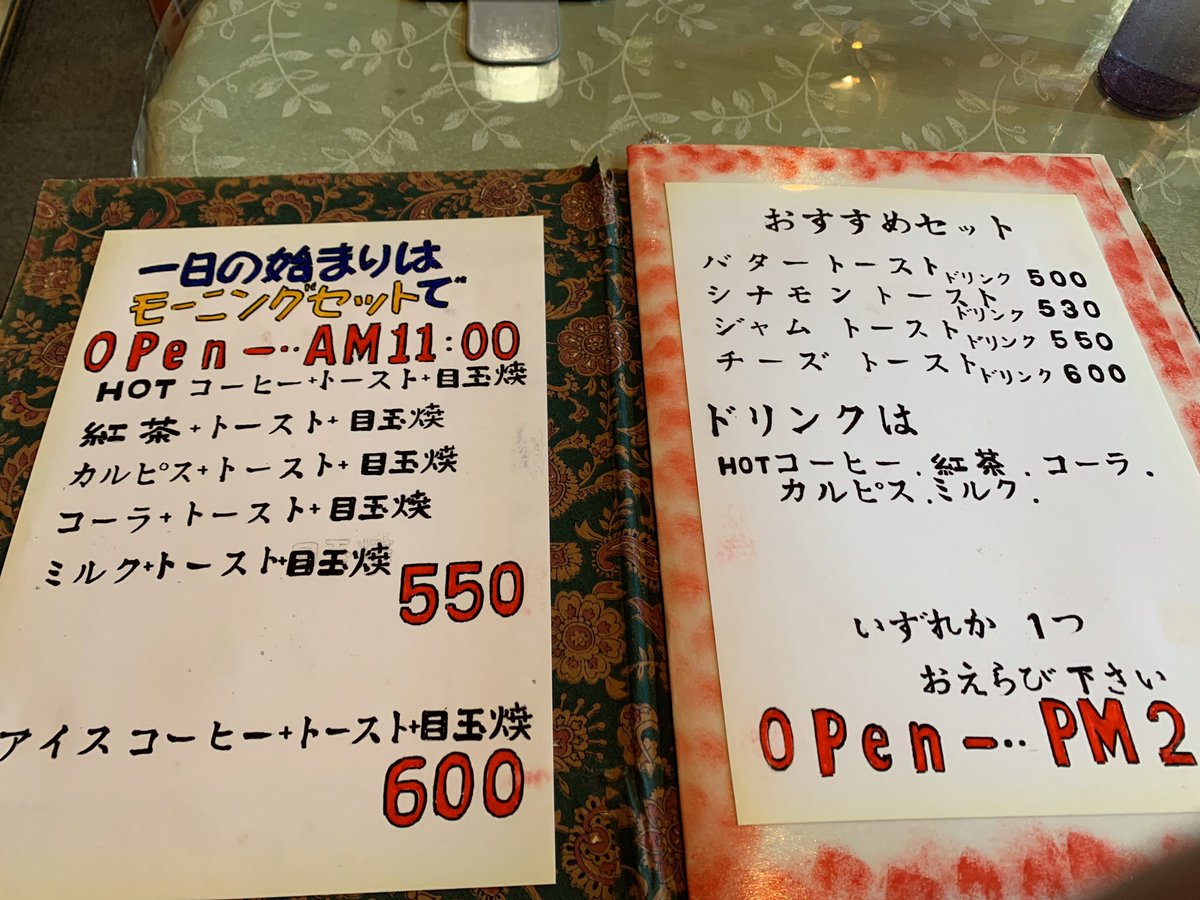 一日の始まりは
モーニングセットで
OPen ー‥ AM11:00
HOT コーヒー+トースト+目玉焼
紅茶+トースト+目玉焼
カルピス+トースト+目玉焼
コーラ+トースト+目玉焼
ミルク+トースト+目玉焼
550
アイスコーヒー+トースト+目玉焼
600
おすすめセット
バタートースト ドリンク 500
シナモントースト ドリンク 530
ジャムトースト ドリンク 550
チーズトースト ドリンク 600
ドリンクは
HOTコーヒー.紅茶.コーラ.
カルピス.ミルク.
いずれか 1つ
おえらび下さい
OPen ー‥ PM2